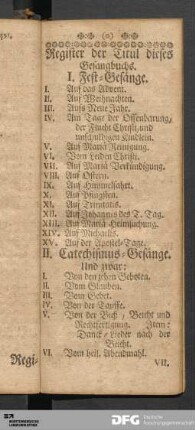 (o)
Register der Titul dieses
Gesangbuchs.
I. Fest-Gesänge.
I. Auf das Advent.
II. Auf Weihnachten.
III. Auf Neue Jahr.
IV. Am Tage der Offenbarung,
der Flucht Christi, und
unschuldigen Kindlein.
V. Auf Mariä Reinigung.
VI. Vom Leiden Christi.
VII. Auf Mariä Verkündigung.
VIII. Auf Ostern.
IX. Auf Himmelfahrt.
X. Auf Pfingsten.
XI. Auf Trinitatis.
XII. Auf Johannis des T. Tag.
XIII. Auf Mariä Heimsuchung.
XIV. Auf Michaelis.
XV. Auf der Apostel-Tage.
II. Catechismus-Gesänge.
Und zwar:
I. Von den zehen Geboten.
II. Vom Glauben.
III. Vom Gebet.
IV. Von der Tauffe.
V. Von der Buß, Beicht und
Rechtfertigung. Item:
Danck-Lieder nach der
Beicht.
VI. Vom heil. Abendmahl.
VII.
Regi-
DFG
Deutsche
Forschungsgemeinschaft